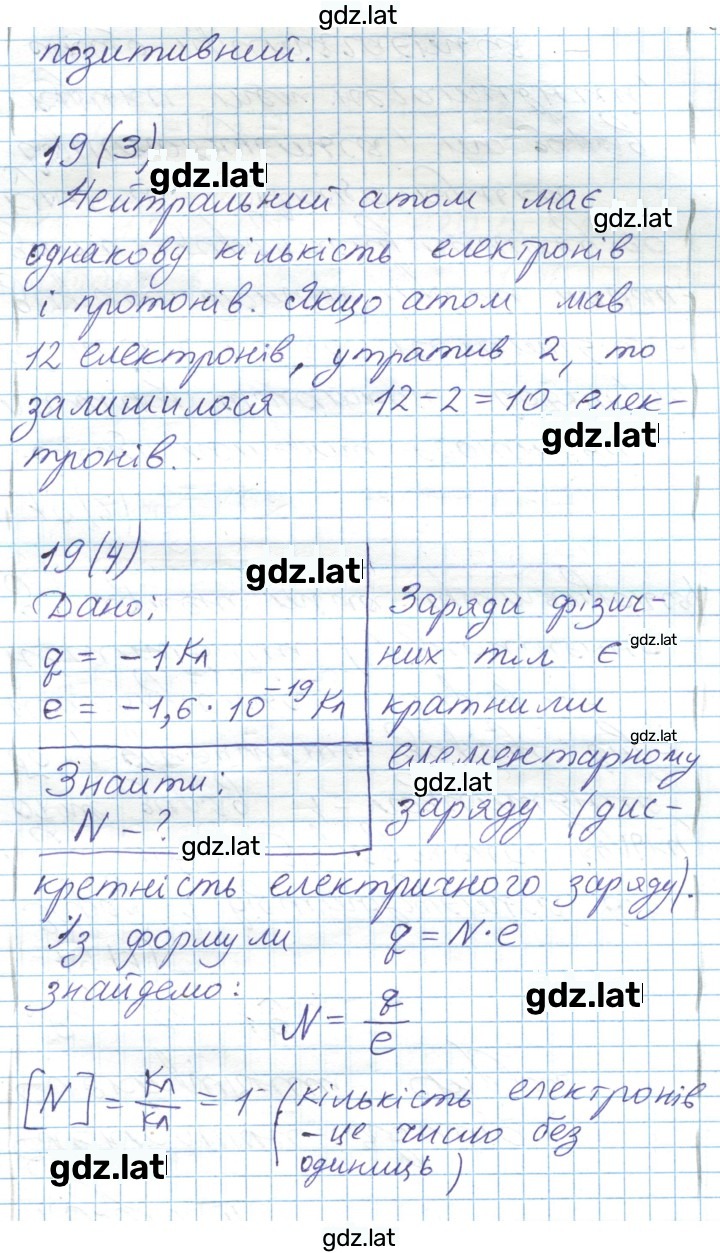 gdz.lat
позитивний.
19(3)
gdz.lat
Нейтральний атом має
gdz.lat
однакову кількість електронів
і протонів. Якщо атом мав
12 електронів, утратив 2, то
залишилося 12-2=10 елек-
gdz.lat
тронів.
19(4)
gdz.lat
Дано:
q = -1 Кл
e = -1,6·10⁻¹⁹ Кл
Знайти:
N - ?
gdz.lat
Заряди фізич-
gdz.lat
них тіл є
кратними
gdz.lat
елементарному
gdz.lat
заряду (дис-
кретність електричного заряду).
Із формули q = N·e
знайдемо:
gdz.lat
N = q/e
[N] = Кл/Кл = 1 - (кількість електронів
- це число без
одиниць)
gdz.lat
gdz.lat